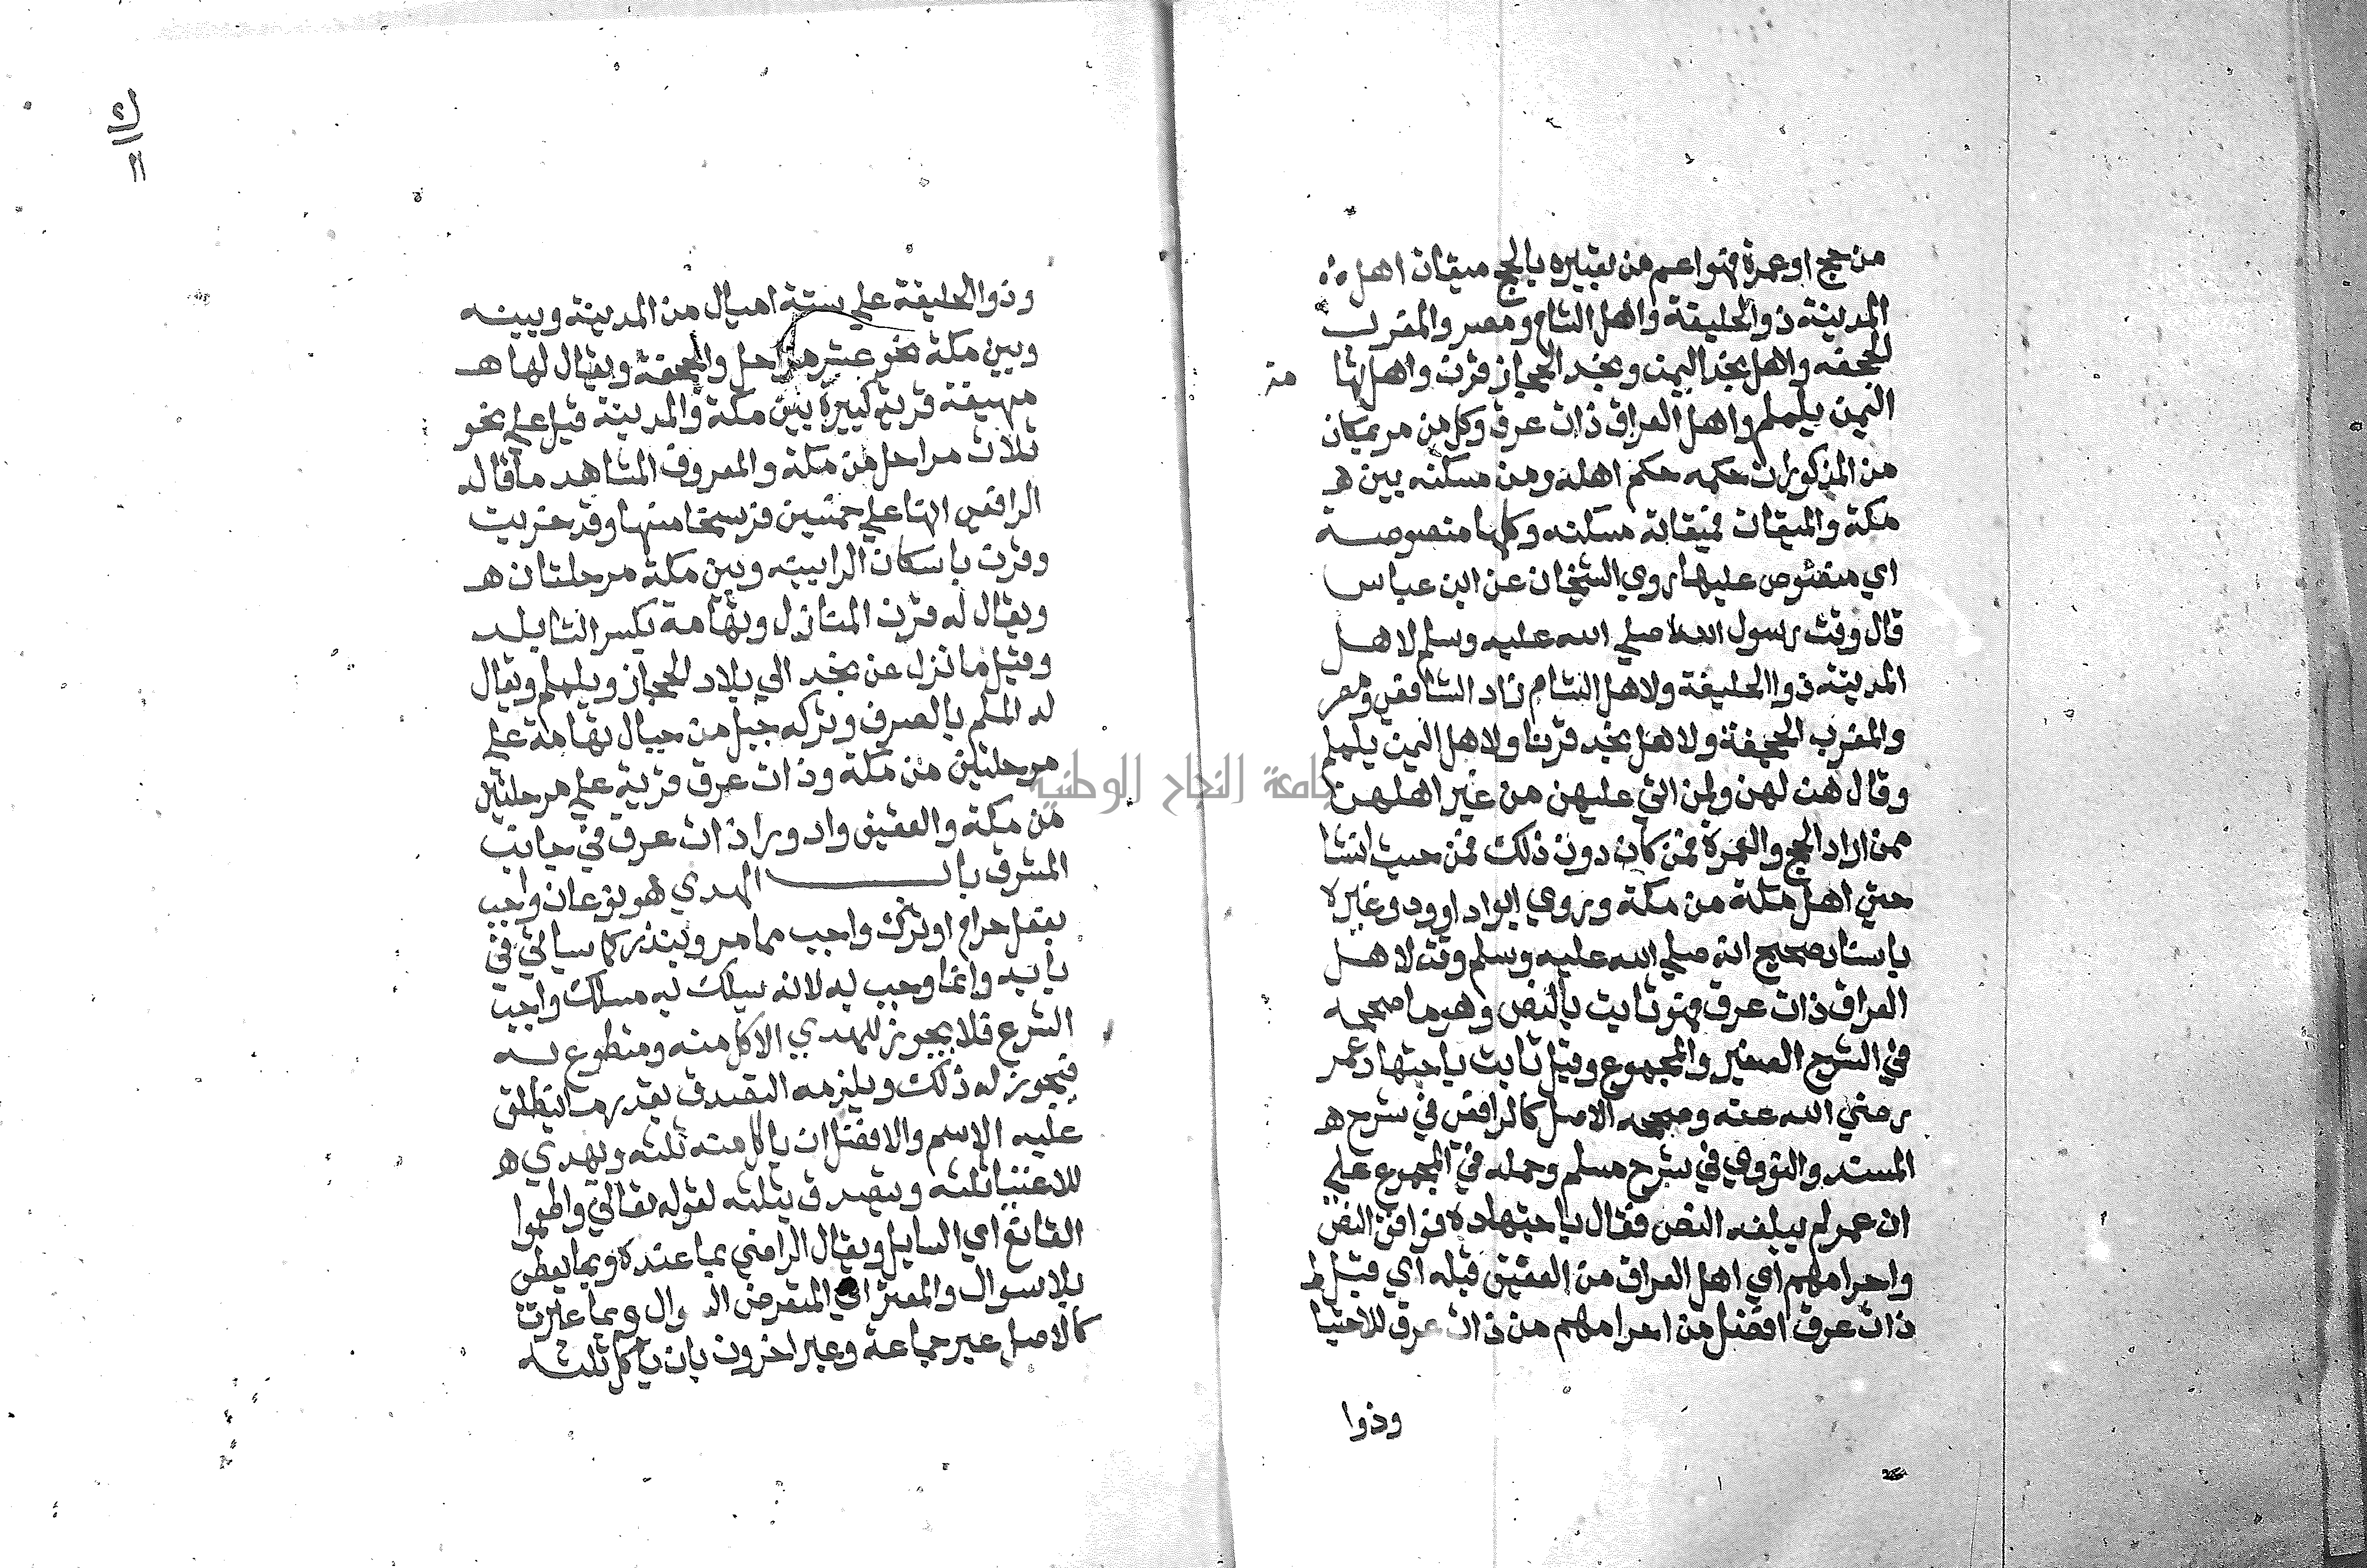 من حج او عمرة فهو اعم من تعبيره بالحج ميقات اهل
المدينة ذو الحليفة واهل الشام ومصر والمغرب
الجحفه واهل نجد اليمن ونجد الحجاز قرن واهل تها
مة
اليمن يلملم واهل العراق ذات عرق وكل من مر بمكان
من المذكورات حكمه حكم اهله ومن مسكنه بين هـ
مكة والميقات فميقاته مسكنه وكلها منصوصة
اي منصوص عليها روي الشيخان عن ابن عباس
قال وقت رسول الله صلي الله عليه وسلم لاهل
المدينة ذوا الحليفة ولاهل الشام زاد الشافعي ومصر
والمغرب الجحفة ولاهل نجد قرنا ولاهل اليمن يلملم
وقال هن لهن ولمن اتي عليهن من غير اهلهن
ممن اراد الحج والعمرة فمن كان دون ذلك فمن حيث انشا
حتي اهل مكة من مكة وروي ابو داوود وغيره
باسناد صحيح انه صلي الله عليه وسلم وقت لاهل
العراق ذات عرق فهو ثابت بالنص وهو ما صححه
في الشرح الصغير والمجموع وقيل ثابت باجتهاد عمر
رضي الله عنه وصححه الاصل كالرافعي في شرح هـ
المسند والنووي في شرح مسلم وحمله في المجموع علي
ان عمر لم يبلغه النص فقال باجتهاده فوافق النص
واحرامهم اي اهل العراق من العقيق قبله اي قبل ط
ذات عرق افضل من احرامهم من ذات عرق للاحتيا
وذوا
وذوا الحليفة علي ستة اميال من المدينة وبينه
وبين مكة نحو عشر مراحل والجحفة ويقال لها هـ
مهيعة قرية كبيرة بين مكة والمدينة قيل علي نحو
ثلاث مراحل من مكة والمعروف المشاهد ما قاله
الرافعي انها علي خمسين فرسخا منها وقد خربت
وقرن باسكان الرا بينه وبين مكة مرحلتان هـ
ويقال له قرن المنازل وتهامة بكسر التا بلد
وقيل ما نزل عن نجد الي بلاد الحجاز ويلملم ويقال
له الملم بالصرف وتركه جبل من جبال تهامة علي
مرحلتين من مكة وذات عرق قرية علي مرحلتين
من مكة والعقيق واد ورا ذات عرق في جانب
المشرق باب الهدي هو نوعان واجب
بفعل حرام او ترك واجب مما مر وبنذر كما سياتي في
بابه وانما وجب به لانه يسلك به مسلك واجب
الشرع فلا يجوز للمهدي الاكل منه ومتطوع به
فيجوز له ذلك ويلزمه التصدق بقدر ما ينطلق
عليه الاسم والافضل ان ياكل منه ثلثه ويهدي هـ
للاغنيا ثلثه ويتصدق بثلثه لقوله تعالي واطعموا
القانع اي السايل ويقال الراضي بما عنده وبما يعطي
بلا سوال والمعتر اي المتعرض الـ وال وبما عبرت
كالاصل عبر جماعة وعبر اخرون بان ياكل ثلثه
جامعة النجاح الوطنية